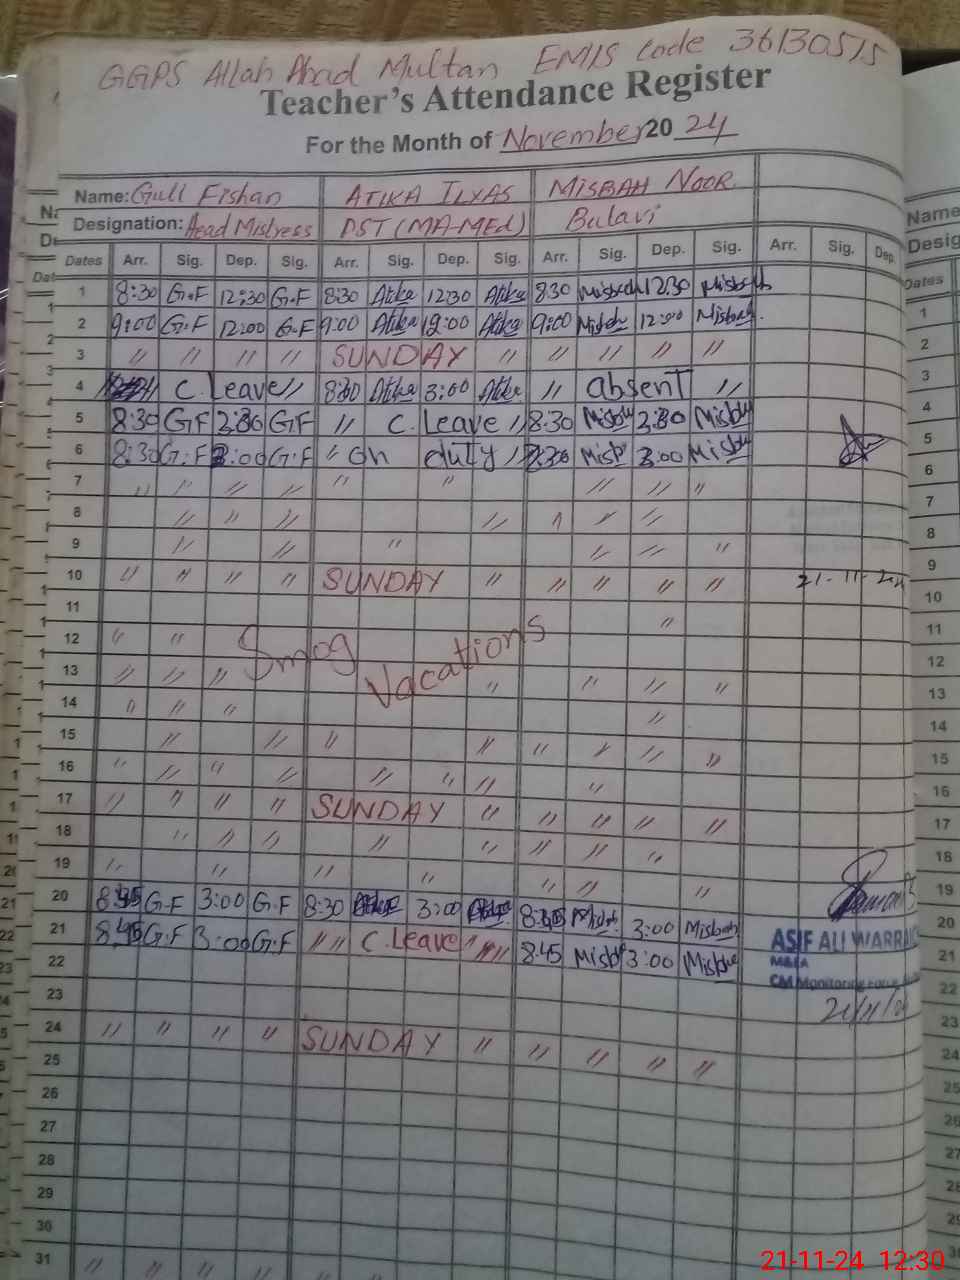 GGPS Allah Abad Multan EMIS Code 36130515
Teacher's Attendance Register
For the Month of November 2024
Name: Gull Fishan ATIKA ILYAS MISBAH NOOR
Designation: Head Mistress PST (MA-MEd) Bulavi
Dates Arr. Sig. Dep. Sig. Arr. Sig. Dep. Sig. Arr. Sig. Dep. Sig. Arr. Sig. Dep.
1 8:30 G.F 12:30 G.F 8:30 Atika 12:30 Atika 8:30 Misbah 12:30 Misbah
2 9:00 G.F 12:00 G.F 9:00 Atika 12:00 Atika 9:00 Misbah 12:00 Misbah
3 〃 〃 〃 〃 SUNDAY 〃 〃 〃 〃 〃
4 C. Leave 〃 8:30 Atika 3:00 Atika 〃 absent 〃
5 8:30 G.F 2:30 G.F 〃 C. Leave 〃 8:30 Misbah 2:30 Misbah
6 8:30 G.F 3:00 G.F 〃 on duty 〃 8:30 Misb 3:00 Misbah
7 〃 〃 〃 〃 〃 〃 〃 〃 〃
8 〃 〃 〃 〃 〃 〃 〃
9 〃 〃 〃 〃 〃 〃
10 〃 〃 〃 〃 SUNDAY 〃 〃 〃 〃 〃 21-11-24
11 〃
12 〃 〃
Smog Vacations
13 〃 〃 〃 〃 〃 〃 〃
14 〃 〃 〃 〃
15 〃 〃 〃 〃 〃 〃 〃 〃
16 〃 〃 〃 〃 〃 〃 〃 〃
17 〃 〃 〃 〃 SUNDAY 〃 〃 〃 〃 〃
18 〃 〃 〃 〃 〃 〃 〃 〃
19 〃 〃 〃 〃 〃 〃 〃
20 8:45 G.F 3:00 G.F 8:30 Atika 3:00 Atika 8:45 Misbah 3:00 Misbah
21 8:45 G.F 3:00 G.F 〃 〃 C. Leave 〃 〃 8:45 Misbah 3:00 Misbah
22
23
24 〃 〃 〃 〃 SUNDAY 〃 〃 〃 〃 〃
25
26
27
28
29
30
31 〃 〃
ASIF ALI WARRAI
M&EA
CM Monitoring Force
21/11/24
Name
Desig
Dates
1
2
3
4
5
6
7
8
9
10
11
12
13
14
15
16
17
18
19
20
21
22
23
24
25
26
27
28
29
21-11-24 12:30